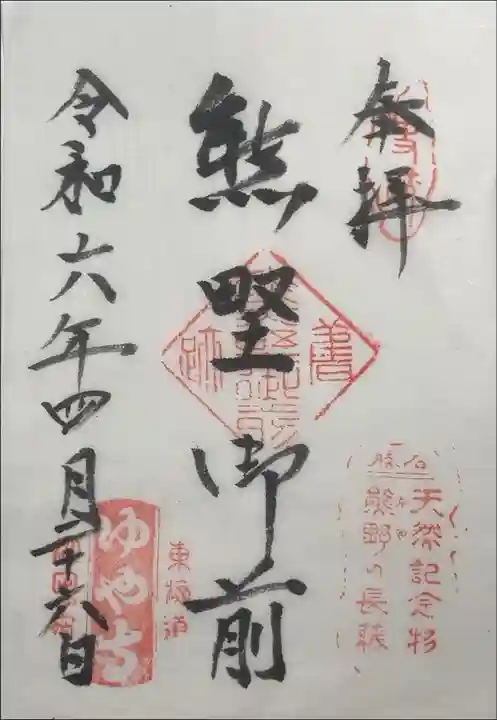 奉拝
熊野御前
令和六年四月二十六日
名勝
天然記念物
熊野の長藤
舊跡
東海道
ゆや寺